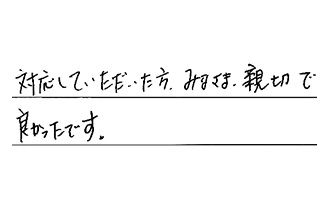 対応していただいた方、みなさま、親切で
良かったです。